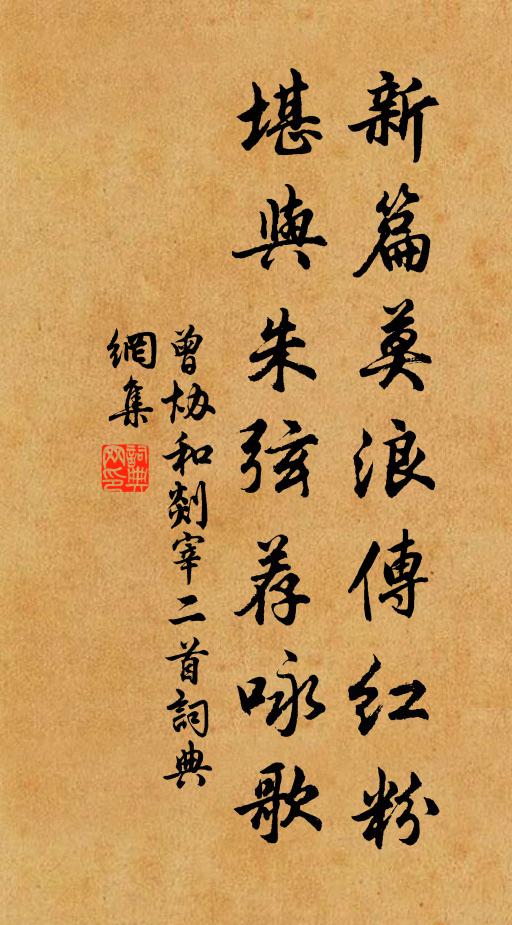 新篇莫浪傳紅粉
堪與朱弦荐咏歌
曾協和剡宰二首詞典
網集
詞典網印